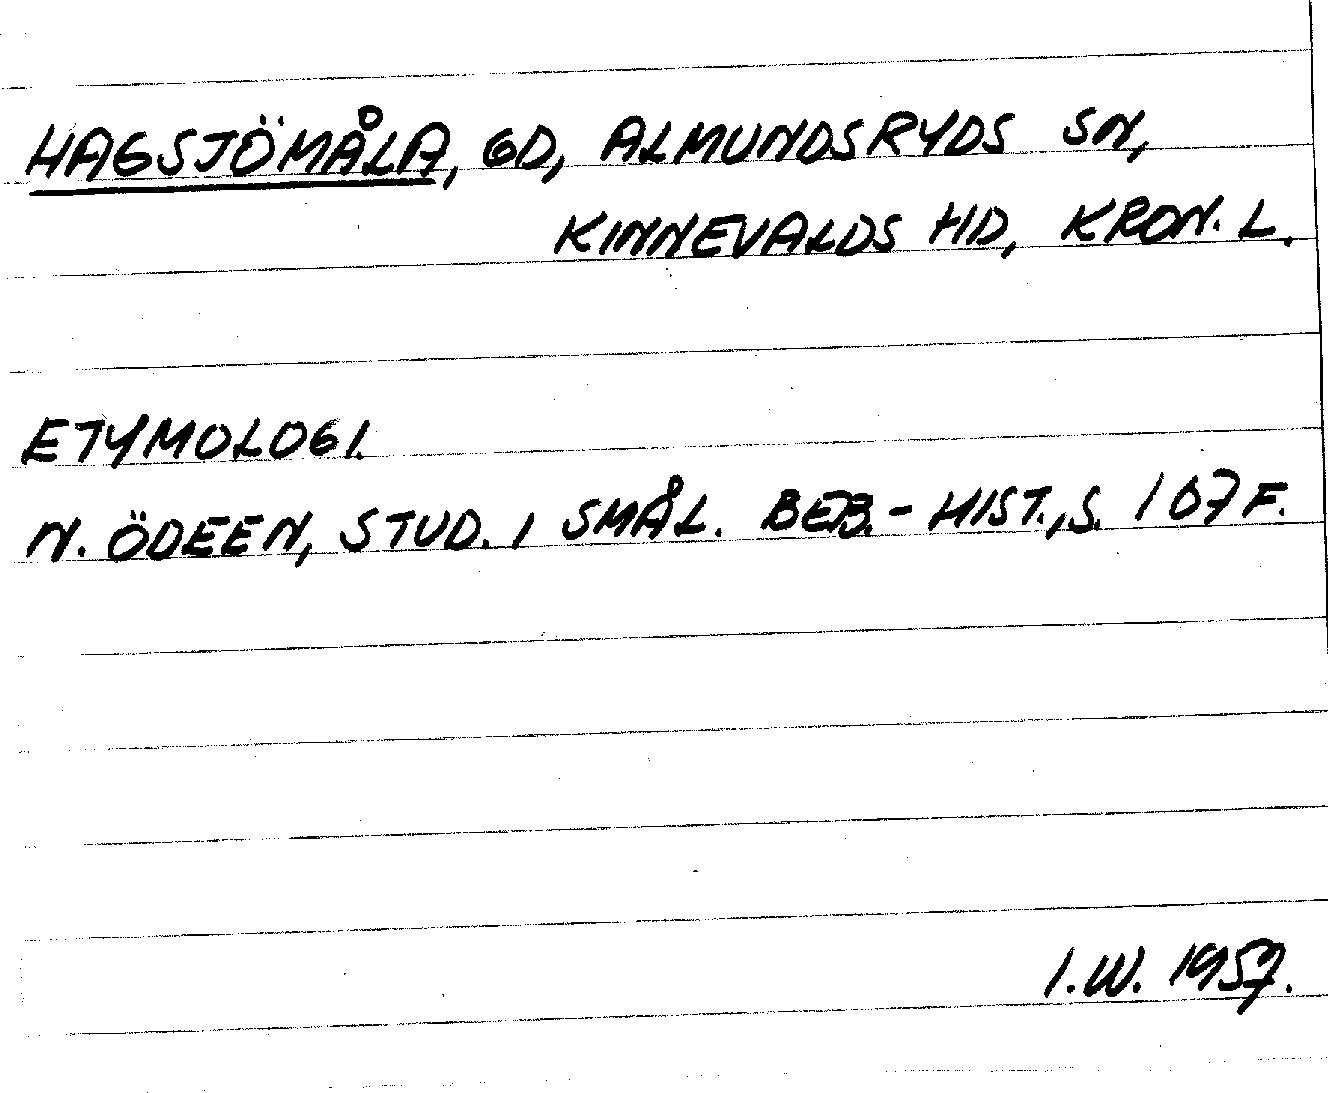 HAGSJÖMÅLA, GD, ALMUNDSRYDS SN,
KINNEVALDS HD, KRON. L.
ETYMOLOGI.
N. ÖDEEN, STUD. I SMÅL. BEB.-HIST., S. 107 F.
I.W. 1957.